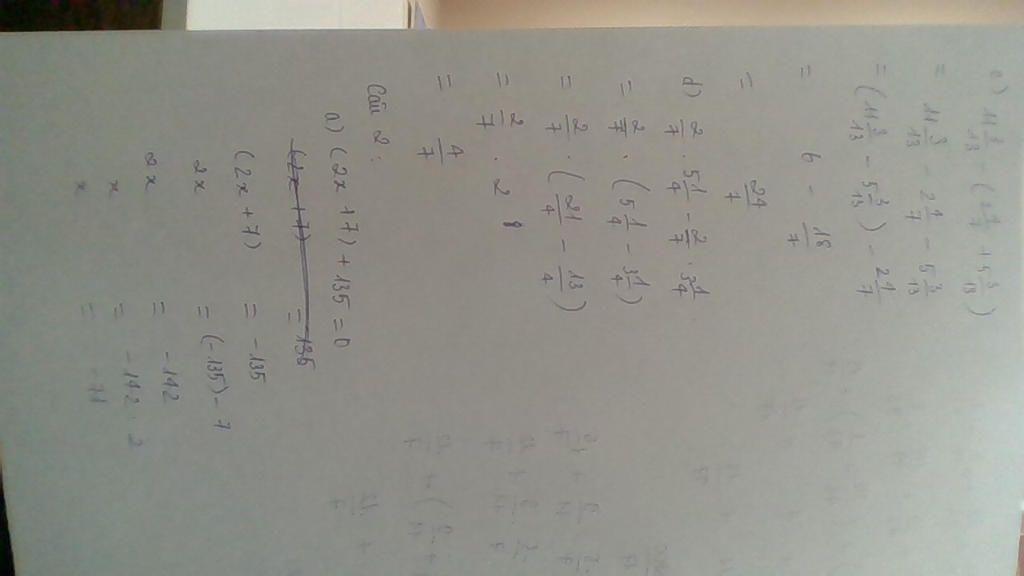 c) 11 3/13 - (2 4/7 + 5 3/13)
= 11 3/13 - 2 4/7 - 5 3/13
= (11 3/13 - 5 3/13) - 2 4/7
= 6 - 18/7
= 24/7
d) 2/7 . 5 1/4 - 2/7 . 3 1/4
= 2/7 . (5 1/4 - 3 1/4)
= 2/7 . (21/4 - 13/4)
= 2/7 . 2
= 4/7
Câu 2:
a) (2x + 7) + 135 = 0
(2x + 7) = -135
(2x + 7) = -135
2x = (-135) - 7
2x = -142
x = -142 : 2
x = -71